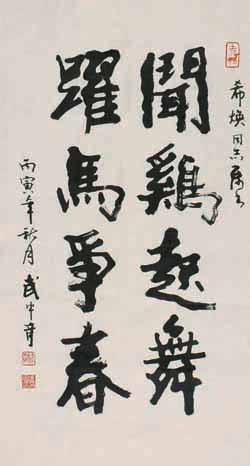 希焕同志属之
聞鷄起舞
躍馬爭春
丙寅年秋月武中奇